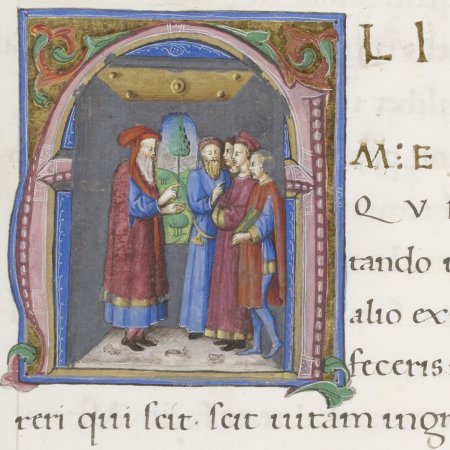 LI
M:E
QVI
tando u
alio ex
feceris
reri qui scit. scit uitam ingr